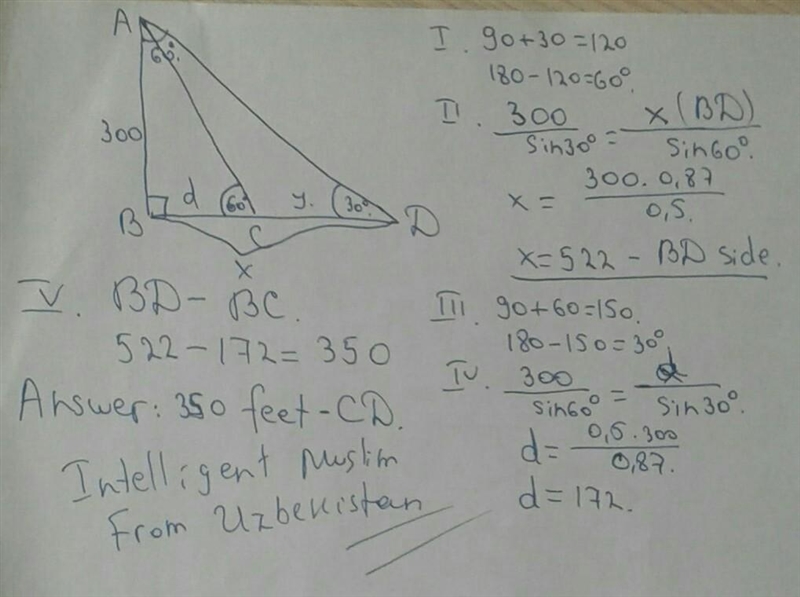 A
60°
300
d
60°
y.
30°
B
C
D
x
I. 90+30=120
180-120=60°.
II. 300/Sin30° = x(BD)/Sin60°.
x = 300.0,87/0,5.
x=522 - BD side.
III. 90+60=150.
180-150=30°.
IV. 300/sin60° = d/Sin30°.
d= 0,5.300/0,87.
d=172.
V. BD- BC.
522-172=350
Answer: 350 feet-CD.
Intelligent Muslim
From Uzbekistan